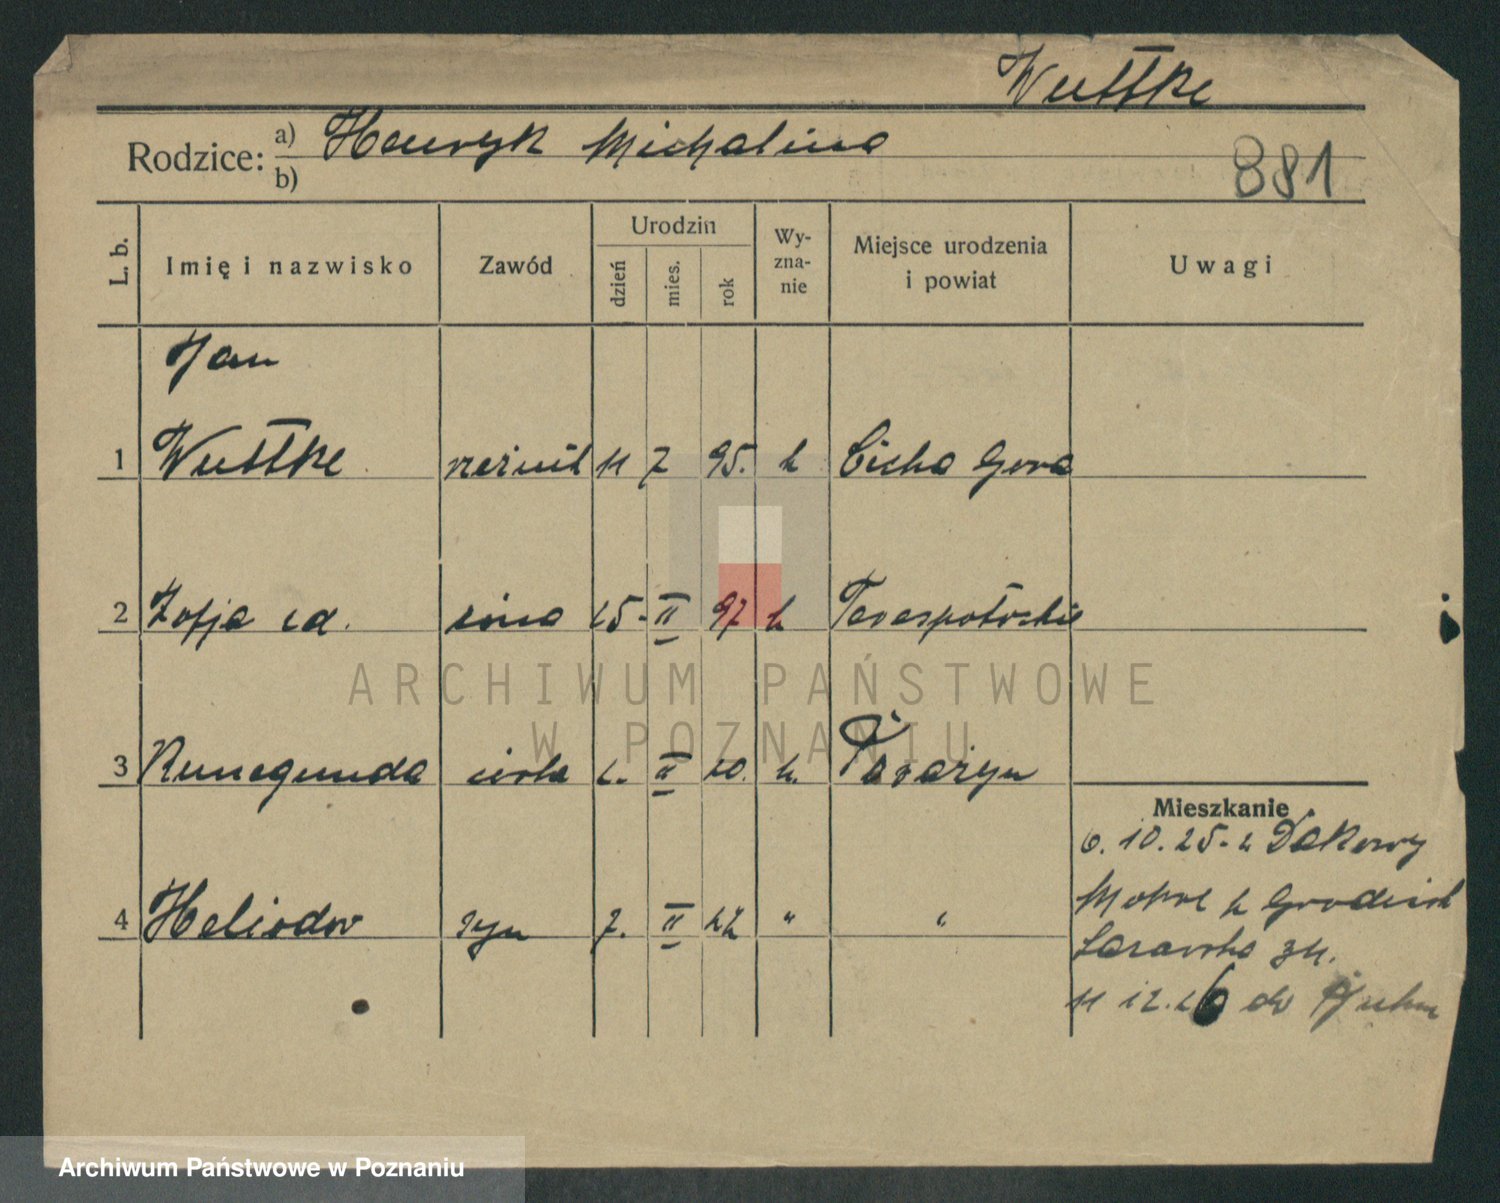 Wuttke
Rodzice: a) Henryk Michalina
b)
881
L. b.
Imię i nazwisko
Zawód
Urodzin
dzień
mies.
rok
Wy-
zna-
nie
Miejsce urodzenia
i powiat
Uwagi
Jan
1 Wuttke rzeźnik 11 7 95. k Cicha Gora
2 Zofja żona 25. II 97 k
3 Kunegunda córka 2. II 20. k.
4 Heliodor syn 7. II 22 " "
Mieszkanie
6. 10. 25. z Dakowy
Mokre k Grodzisk
11 12. 26 do
ARCHIWUM PAŃSTWOWE
W POZNANIU
Archiwum Państwowe w Poznaniu